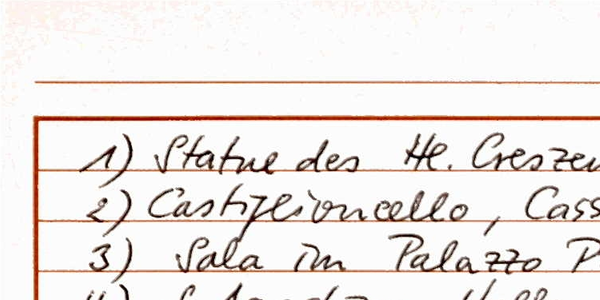 1) Statue des Hl. Creszen
2) Castiglioncello, Cass
3) Sala im Palazzo P